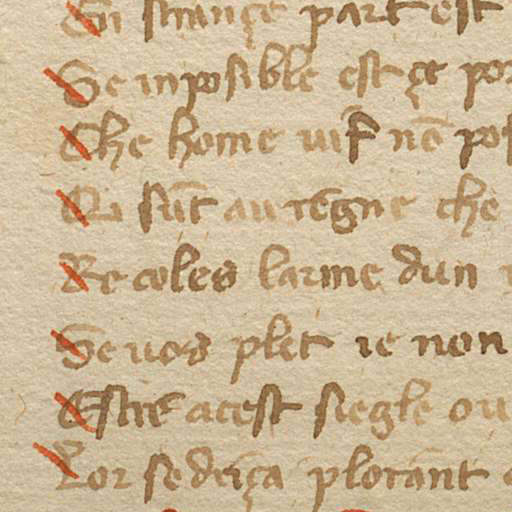 En strançe part est
Se inposible est çe por
Che home uif nē pos
Qi sūt au rēgne che
Re coles larme dun
Se uos plet ie non
Estre acest siegle ou
Lor se driça plorant